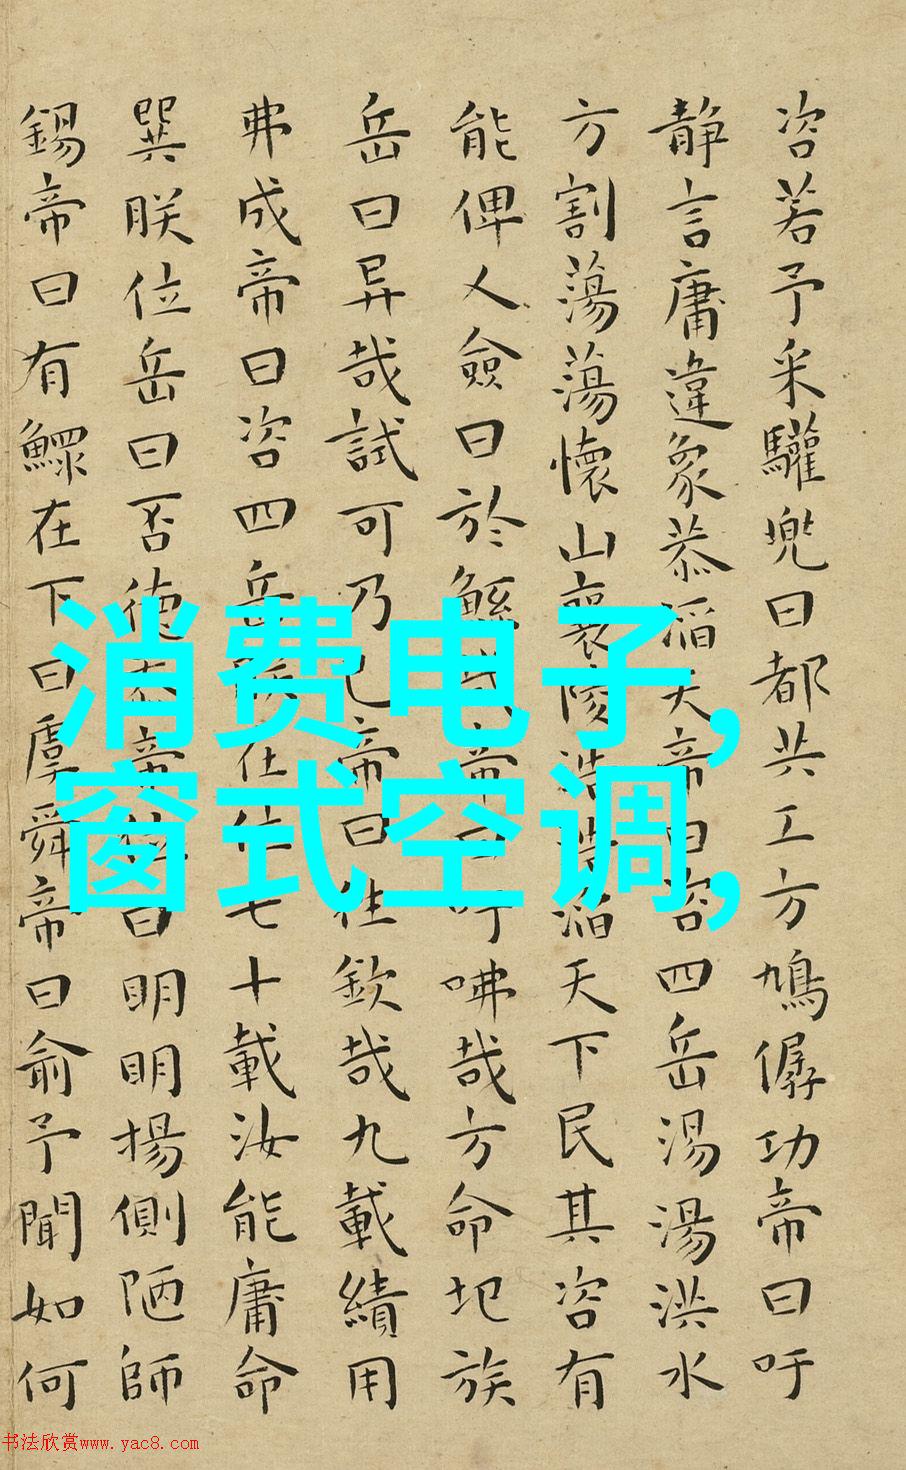 咨若予采驩兜曰都共工方鳩僝功帝曰吁
静言庸違象恭滔天帝曰咨四岳湯湯洪水
方割蕩蕩懷山襄陵浩浩滔天下民其咨有
能俾乂僉曰於鯀哉帝曰吁咈哉方命圮族
岳曰异哉試可乃已帝曰往欽哉九載績用
弗成帝曰咨四岳朕在位七十載汝能庸命
巽朕位岳曰否德忝帝位曰明明揚側陋師
錫帝曰有鰥在下曰虞舜帝曰俞予聞如何
消费电子,
窗式空调,
书法欣赏www.yac8.com